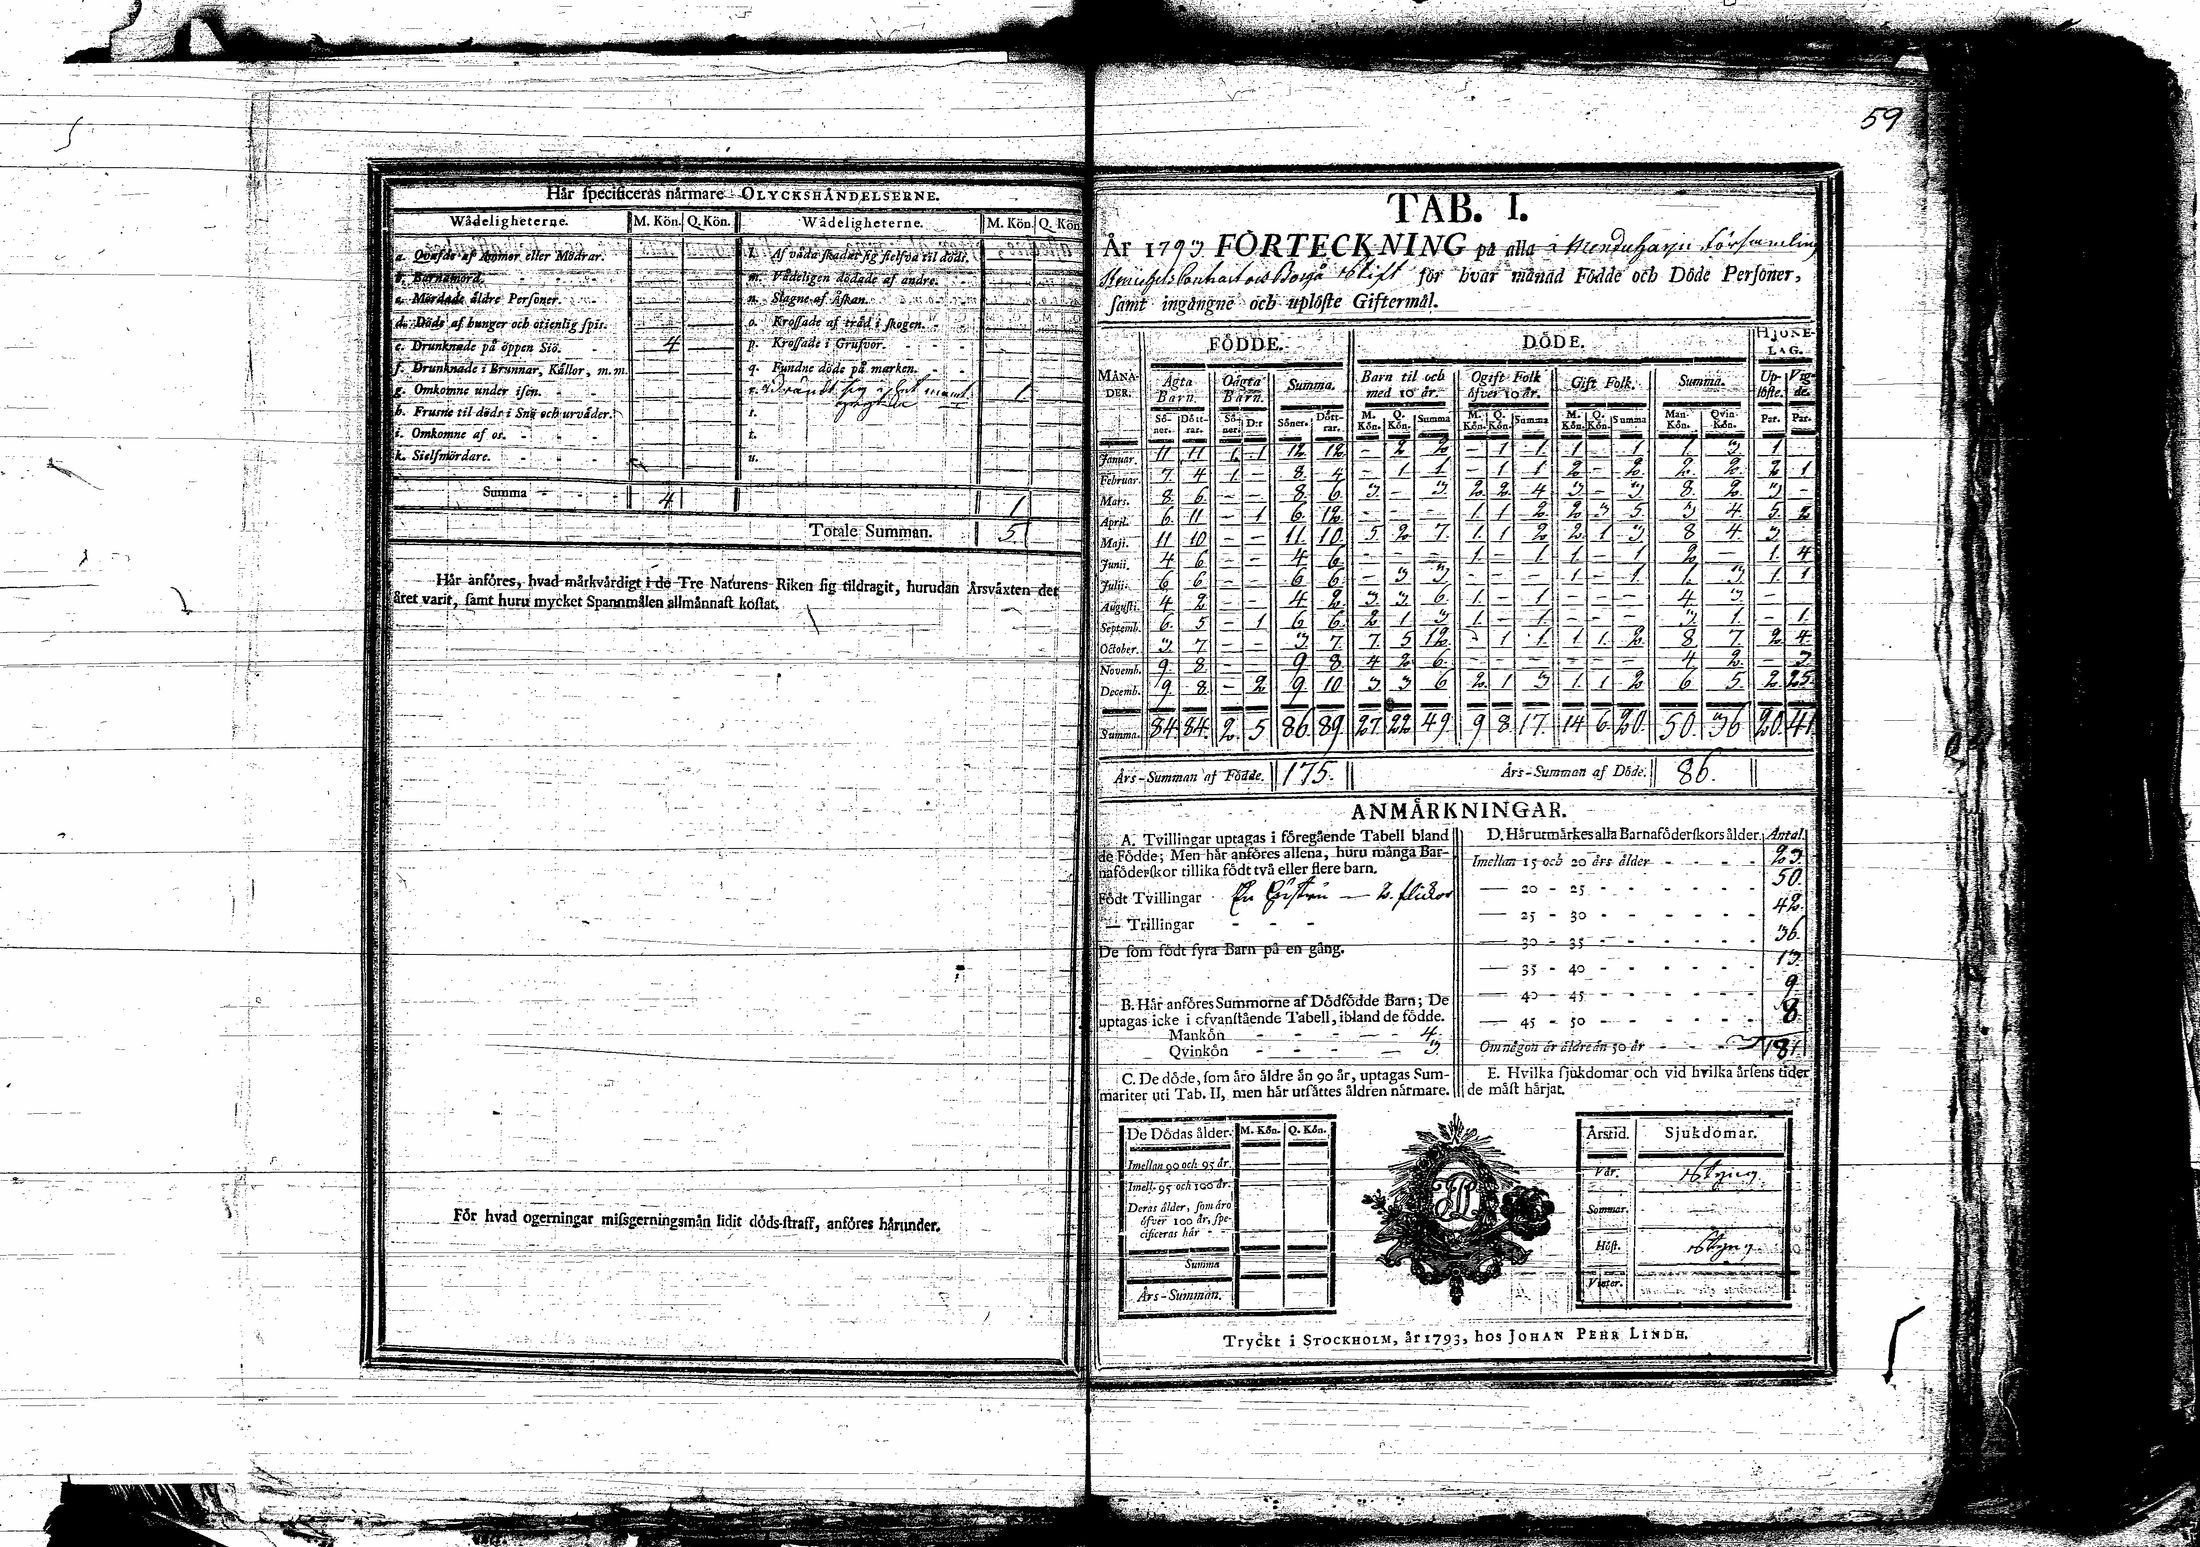 59
Hår specificeras nårmare OLYCKSHÅNDELSERNE.
Wådeligheterne. M. Kön. Q. Kön. Wådeligheterne. M. Kön. Q. Kön.
a. Qvafde af Ammor eller Mödrar. l. Af våda skadat sig sielfva til döds.
b. Barnamord. m. Vådeligen dödade af andre.
c. Mördade åldre Personer. n. Slagne af Åskan.
d. Döde af hunger och otienlig spis. o. Krossade af tråd i skogen.
e. Drunknade på öppen Siö. 4 p. Krossade i Grufvor.
f. Drunknade i Brunnar, Kållor, m. m. q. Fundne döde på marken.
g. Omkomne under isen. r. 1
h. Frusne til döds i Snö och urvåder. s.
i. Omkomne af os. t.
k. Sielfmördare. u.
Summa 4 1
Totale Summan. 5
Hår anföres, hvad mårkvårdigt i de Tre Naturens Riken sig tildragit, hurudan Årsvåxten det
året varit, samt huru mycket Spannmålen allmånnast kostat.
För hvad ogerningar missgerningsmån lidit döds-straff, anföres hårunder.
TAB. I.
År 1793 FÖRTECKNING på alla i Församling
Borgå Stift för hvar månad Födde och Döde Personer,
samt ingångne och uplöste Giftermål.
MÅNADER. FÖDDE. DÖDE. HJONELAG.
Ågta Barn. Oågta Barn. Summa. Barn til och med 10 år. Ogift Folk öfver 10 år. Gift Folk. Summa. Uplöste. Vigde.
Söner. Döttrar. Söner. D:r Söner. Döttrar. M. Kön. Q. Kön. Summa M. Kön. Q. Kön. Summa M. Kön. Q. Kön. Summa Man-Kön. Qvin-Kön. Par. Par.
Januar. 11 11 1 1 12 12 – 2 2 – 1 1 1 – 1 1 3 1
Februar. 7 4 1 – 8 4 – 1 1 – 1 1 2 – 2 2 2 2 1
Mars. 8 6 – – 8 6 3 – 3 2 2 4 3 – 3 8 2 3 –
April. 6 11 – 1 6 12 – – – 1 1 2 2 3 5 3 4 5 2
Maji. 11 10 – – 11 10 5 2 7 1 1 2 2 1 3 8 4 3
Junii. 4 6 – – 4 6 – – – 1 – 1 1 – 1 2 – 1 4
Julii. 6 6 – – 6 6 – 3 3 – – – 1 – 1 1 3 1 1
Augusti. 4 2 – – 4 2 3 3 6 1 – 1 – – – 4 3 –
Septemb. 6 5 – 1 6 6 2 1 3 1 – 1 – – – 3 1 – 1
October. 3 7 – – 3 7 7 5 12 – 1 1 1 1 2 8 7 2 4
Novemb. 9 8 – – 9 8 4 2 6 – – – – – – 4 2 – 3
Decemb. 9 8 – 2 9 10 3 3 6 2 1 3 1 1 2 6 5 2 25
Summa. 84 84 2 5 86 89 27 22 49 9 8 17 14 6 20 50 36 20 41
Års-Summan af Födde. 175. Års-Summan af Döde. 86.
ANMÅRKNINGAR.
A. Tvillingar uptagas i föregående Tabell bland
de Födde; Men hår anföres allena, huru många Bar-
naföderskor tillika födt två eller flere barn.
Födt Tvillingar En — 2. flickor
— Trillingar
De som födt fyra Barn på en gång.
B. Hår anföres Summorne af Dödfödde Barn; De
uptagas icke i ofvanstående Tabell, ibland de födde.
Mankön 4
Qvinkön 3
C. De döde, som åro åldre ån 90 år, uptagas Sum-
mariter uti Tab. II, men hår utsåttes åldren nårmare.
D. Hår utmårkes alla Barnaföderskors ålder. Antal.
Imellan 15 och 20 års ålder 23
— 20 - 25 50
— 25 - 30 42
— 30 - 35 36
— 35 - 40 13
— 40 - 45 9
— 45 - 50 8
Om någon år åldre ån 50 år 181
E. Hvilka sjukdomar och vid hvilka årsens tider
de måst hårjat.
De Dödas ålder. M. Kön. Q. Kön.
Imellan 90 och 95 år.
Imell. 95 och 100 år.
Deras ålder, som åro
öfver 100 år, spe-
cificeras hår
Summa
Års-Summan.
Årstid. Sjukdomar.
Vår. Styng
Sommar.
Höst. Styng
Vinter.
Tryckt i STOCKHOLM, år 1793, hos JOHAN PEHR LINDH.